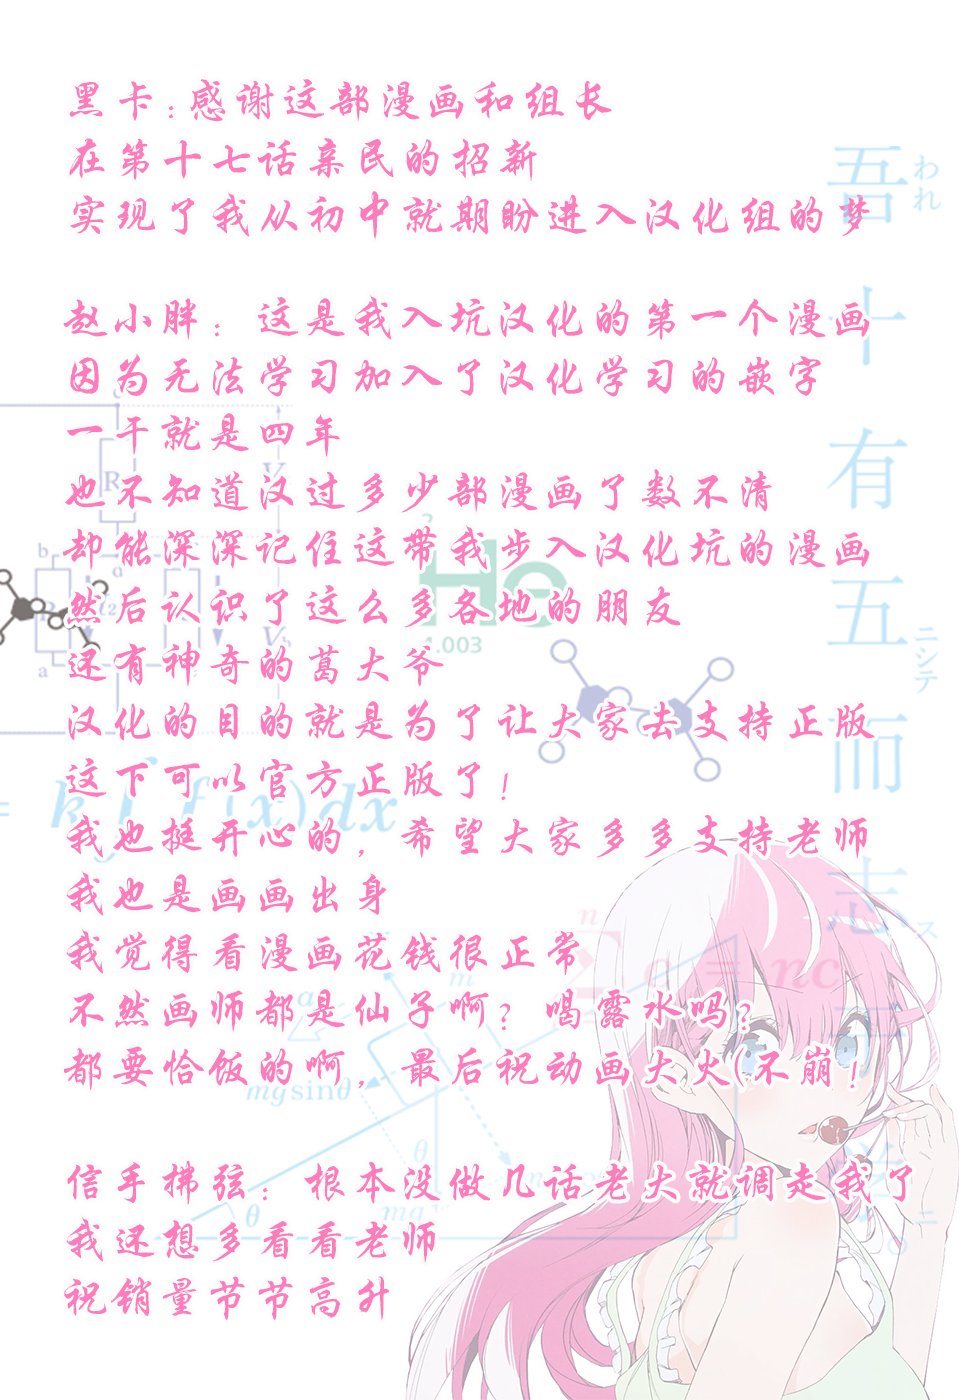 黑卡：感谢这部漫画和组长
在第十七话亲民的招新
实现了我从初中就期盼进入汉化组的梦
赵小胖：这是我入坑汉化的第一个漫画
因为无法学习加入了汉化学习的嵌字
一干就是四年
也不知道汉过多少部漫画了数不清
却能深深记住这带我步入汉化坑的漫画
然后认识了这么多各地的朋友
还有神奇的葛大爷
汉化的目的就是为了让大家去支持正版
这下可以官方正版了！
我也挺开心的，希望大家多多支持老师
我也是画画出身
我觉得看漫画花钱很正常
不然画师都是仙子啊？喝露水吗？
都要恰饭的啊，最后祝动画大火(不崩！
信手拂弦：根本没做几话老大就调走我了
我还想多看看老师
祝销量节节高升
吾十有五而志
われ
ニシテ
ス
ニ
R
V
b
a
He
4.003
= k∫f(x)dx
n
m
a
nc
mg sinθ
θ
θ
mg